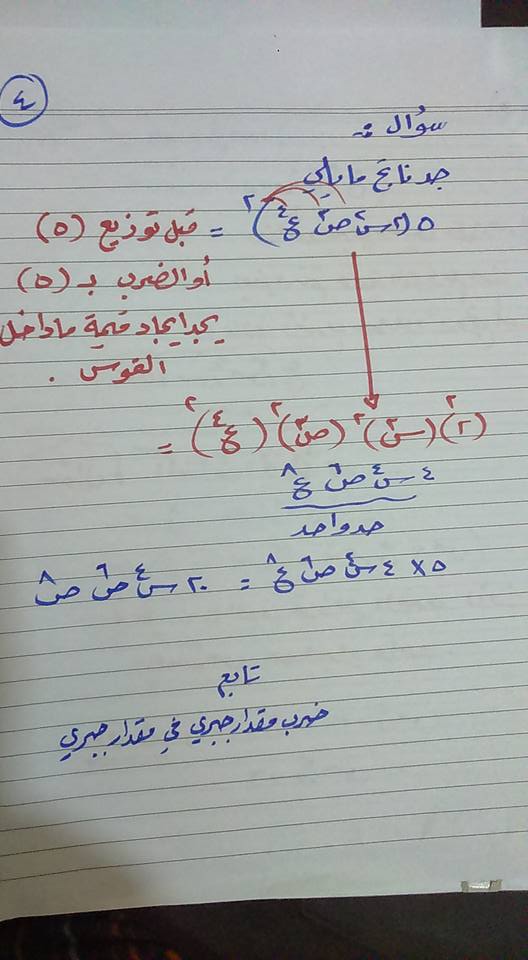 ٤
سؤال :-
جد ناتج ما يلي
٥(٢س٢ ص٣ ع٤)٢ = قبل توزيع (٥)
أو الضرب بـ (٥)
يجب ايجاد قيمة ما داخل
القوس .
(٢)٢ (س٢)٢ (ص٣)٢ (ع٤)٢ =
٤ س٤ ص٦ ع٨
حد واحد
٥ × ٤ س٤ ص٦ ع٨ = ٢٠ س٤ ص٦ ص٨
تابع
ضرب مقدار جبري في مقدار جبري